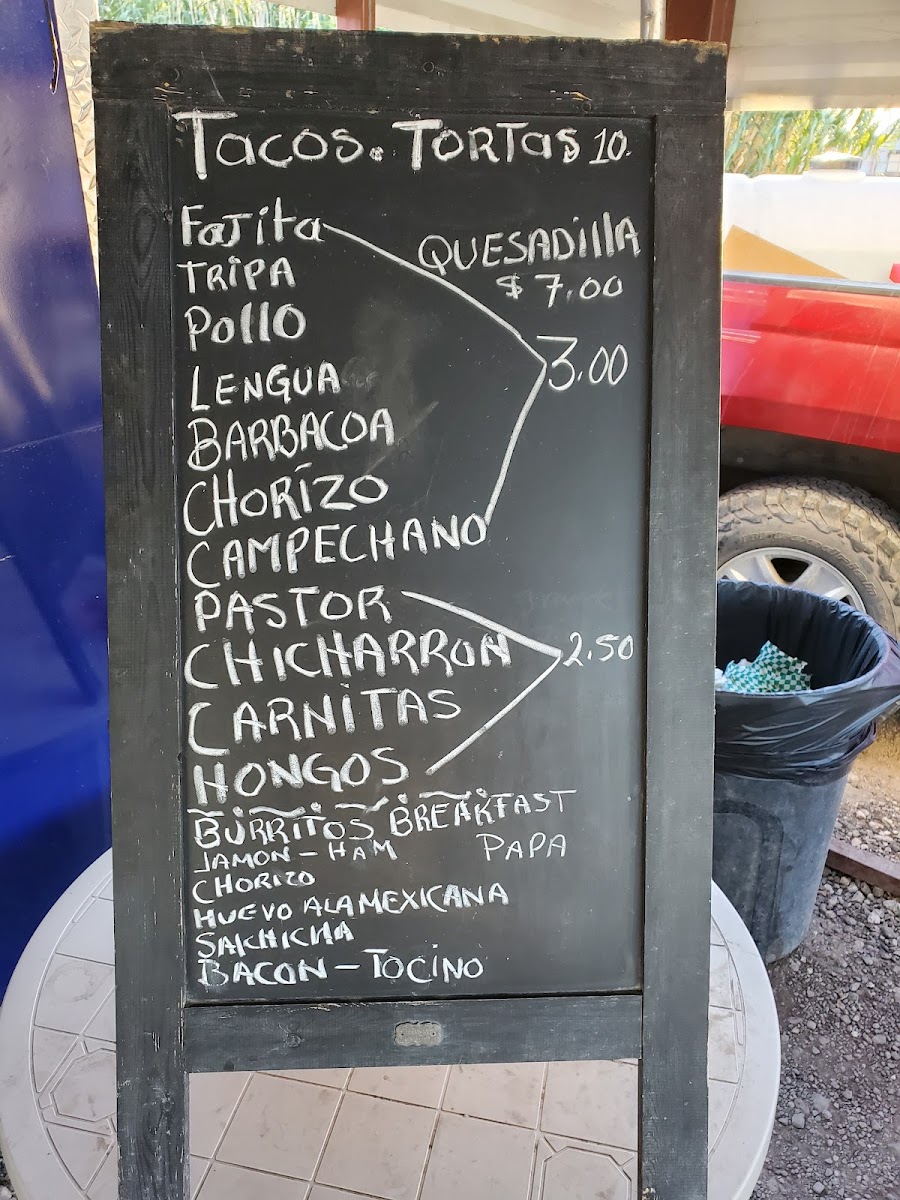 TACOS. TORTAS 10.
Fajita
QUESADIllA
TRIPA
$ 7.00
Pollo
3.00
LENGUA
BARBACOA
CHORIZO
CAMPECHANO
PASTOR
CHICHARRON
2.50
CARNITAS
HONGOS
BURRITOS BREAKFAST
JAMON - HAM
PAPA
CHORIZO
HUEVO ALA MEXICANA
SALCHICHA
BACON - TOCINO